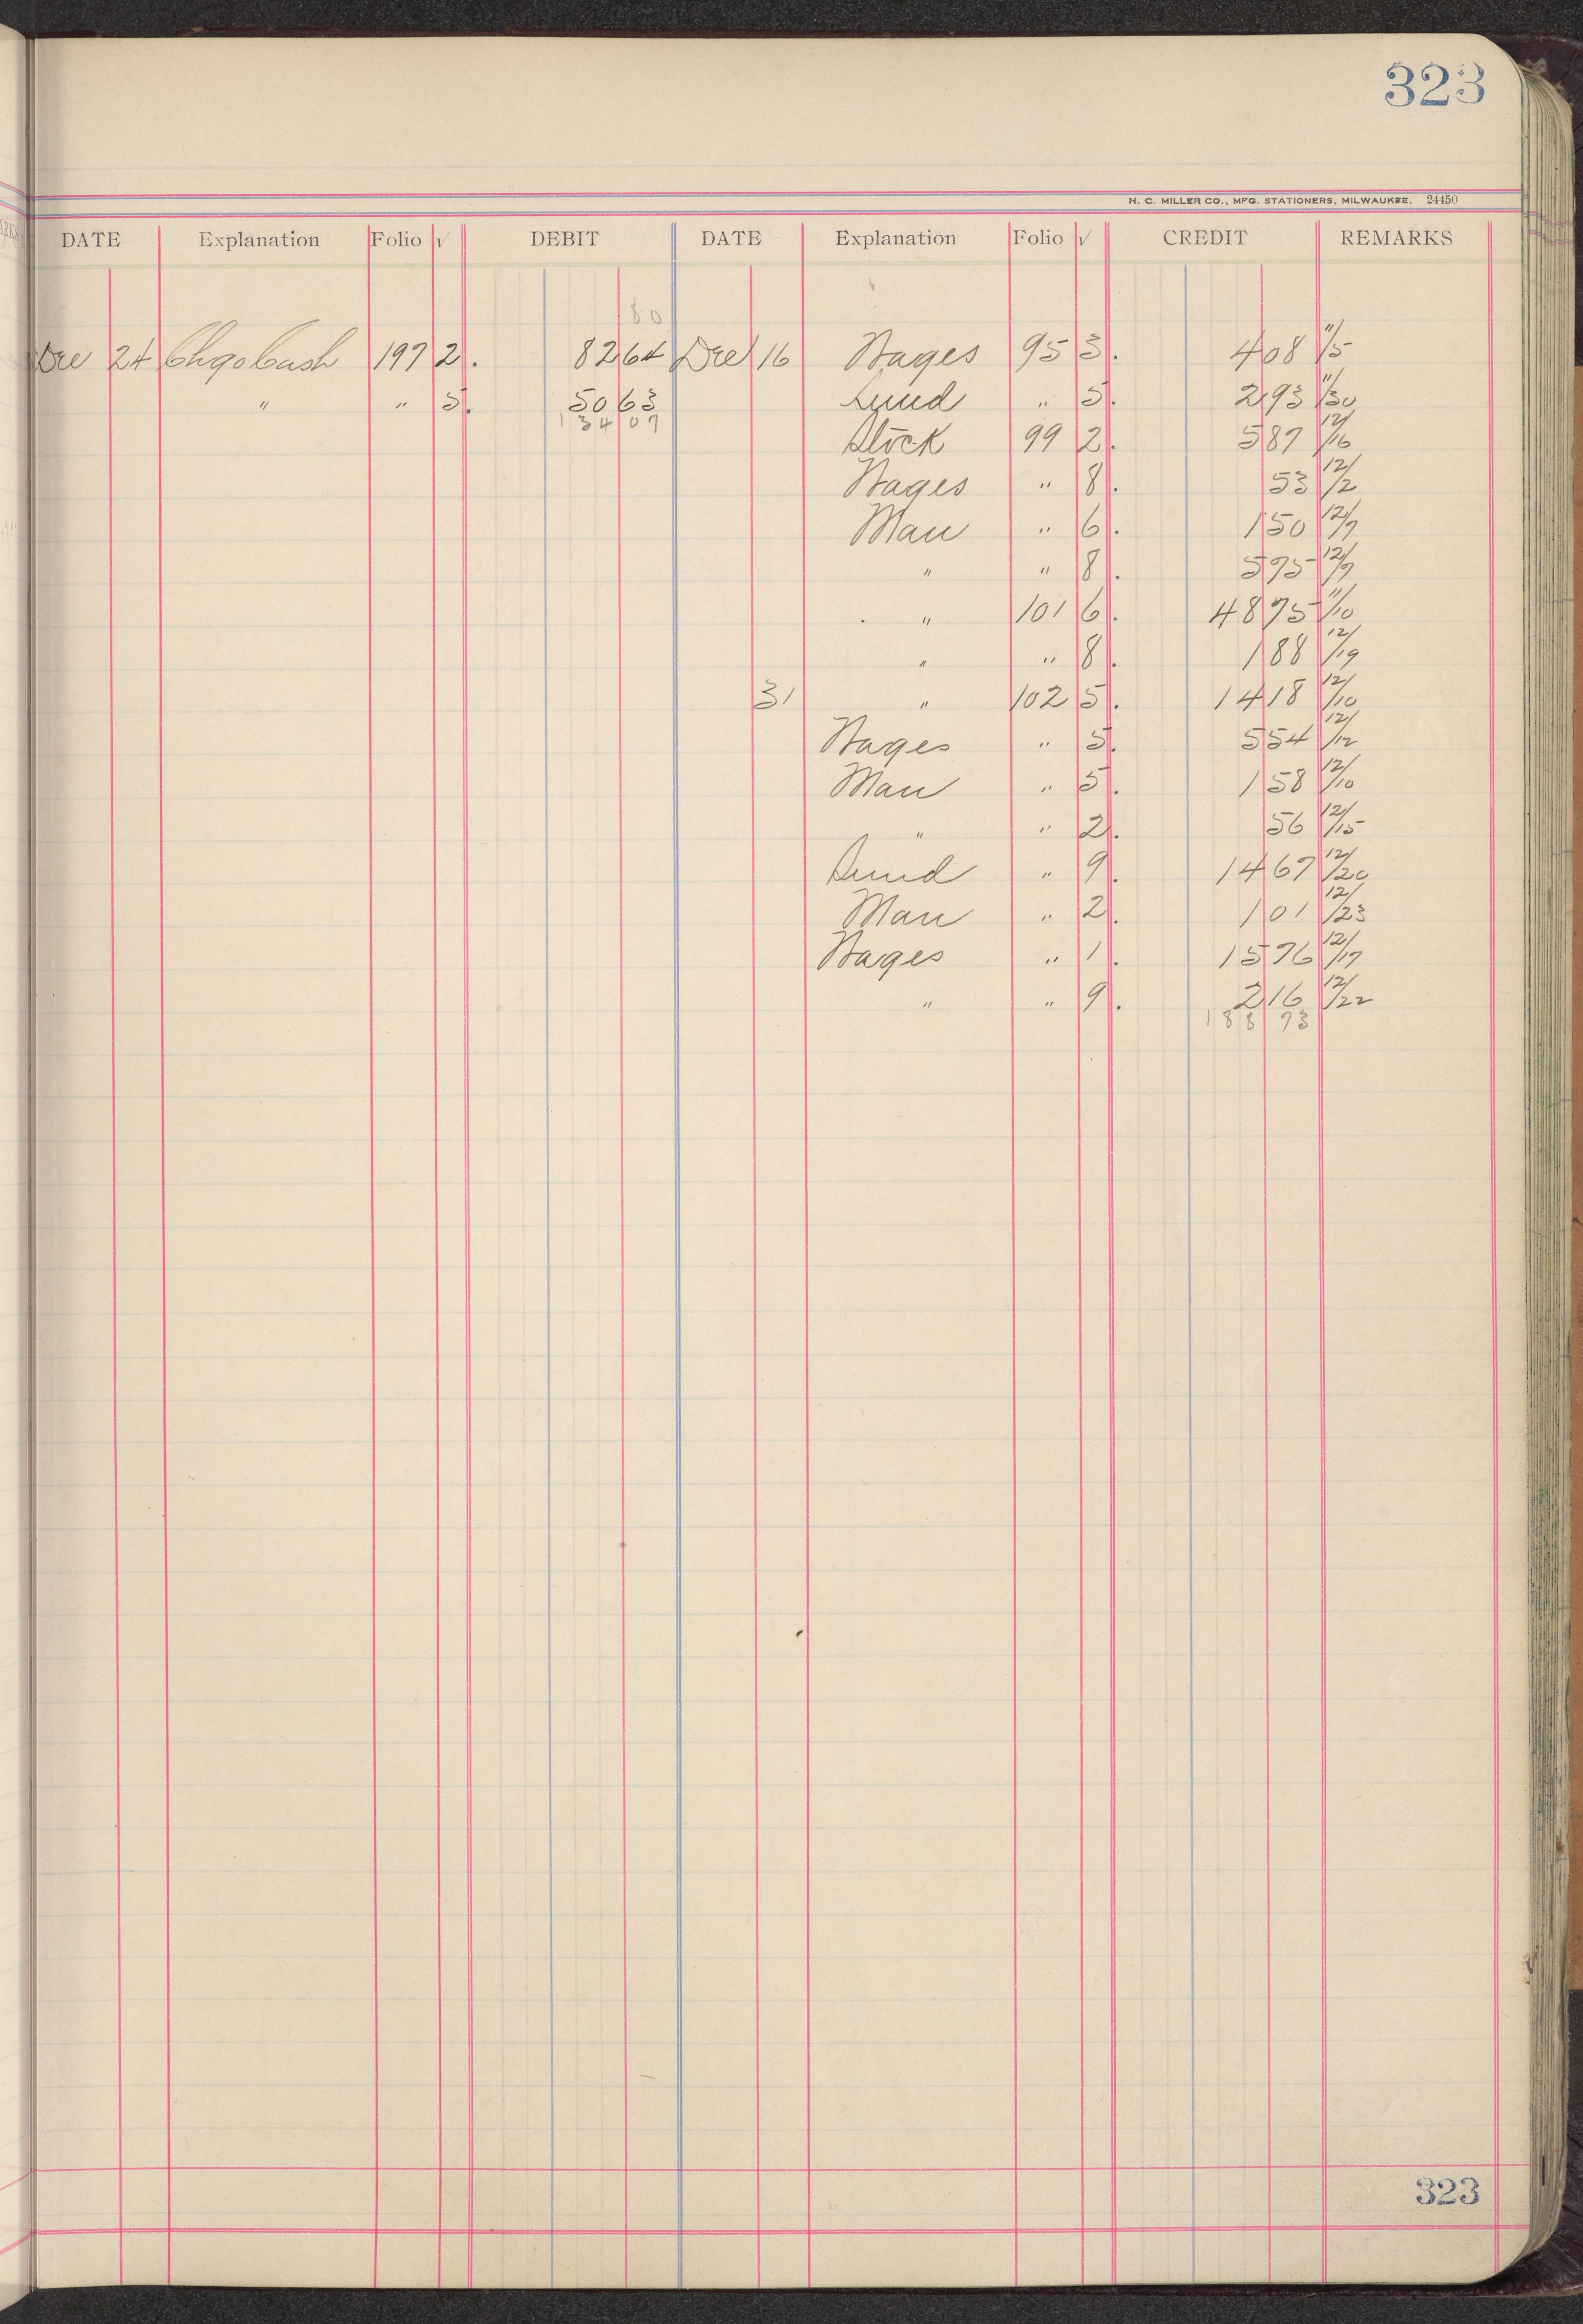 323
H. C. MILLER CO., MFG. STATIONERS, MILWAUKEE. 24450
DATE Explanation Folio √ DEBIT DATE Explanation Folio √ CREDIT REMARKS
80
Dec 24 Chgo Cash 197 2. 82 64 Dec 16 Wages 95 3. 4 08 11/5
" " 5. 50 63 Lund " 5. 2 93 11/30
134 07
Stock 99 2. 5 87 12/16
Wages " 8. 53 12/2
Man " 6. 1 50 12/7
" " 8. 5 95 12/9
" 101 6. 48 75 11/10
" " 8. 1 88 12/19
31 " 102 5. 14 18 12/10
Wages " 5. 5 54 12/12
Man " 5. 1 58 12/10
" " 2. 56 12/15
Lund " 9. 14 67 12/20
Man " 2. 1 01 12/23
Wages " 1. 15 76 12/17
" " 9. 2 16 12/22
188 73
323